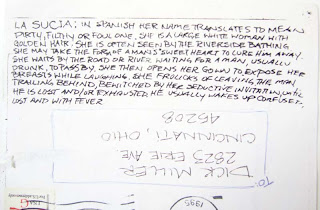 LA SUCIA: IN SPANISH HER NAME TRANSLATES TO MEAN
DIRTY, FILTHY OR FOUL ONE. SHE IS A LARGE WHITE WOMAN WITH
GOLDEN HAIR. SHE IS OFTEN SEEN BY THE RIVERSIDE BATHING.
SHE MAY TAKE THE FORM OF A MAN'S SWEET HEART TO LURE HIM AWAY.
SHE WAITS BY THE ROAD OR RIVER WAITING FOR A MAN, USUALLY
DRUNK, TO PASS BY. SHE THEN OPENS HER GOWN TO EXPOSE HER
BREASTS WHILE LAUGHING. SHE FROLICS LEAVING THE MAN
TRAILING BEHIND, BEWITCHED BY HER SEDUCTIVE INVITATION, UNTIL
HE IS LOST AND/OR EXHAUSTED. HE USUALLY WAKES UP CONFUSED,
LOST AND WITH FEVER
TO:
DICK MILLER
2823 ERIE AVE.
CINCINNATI, OHIO
45208
1995
USA